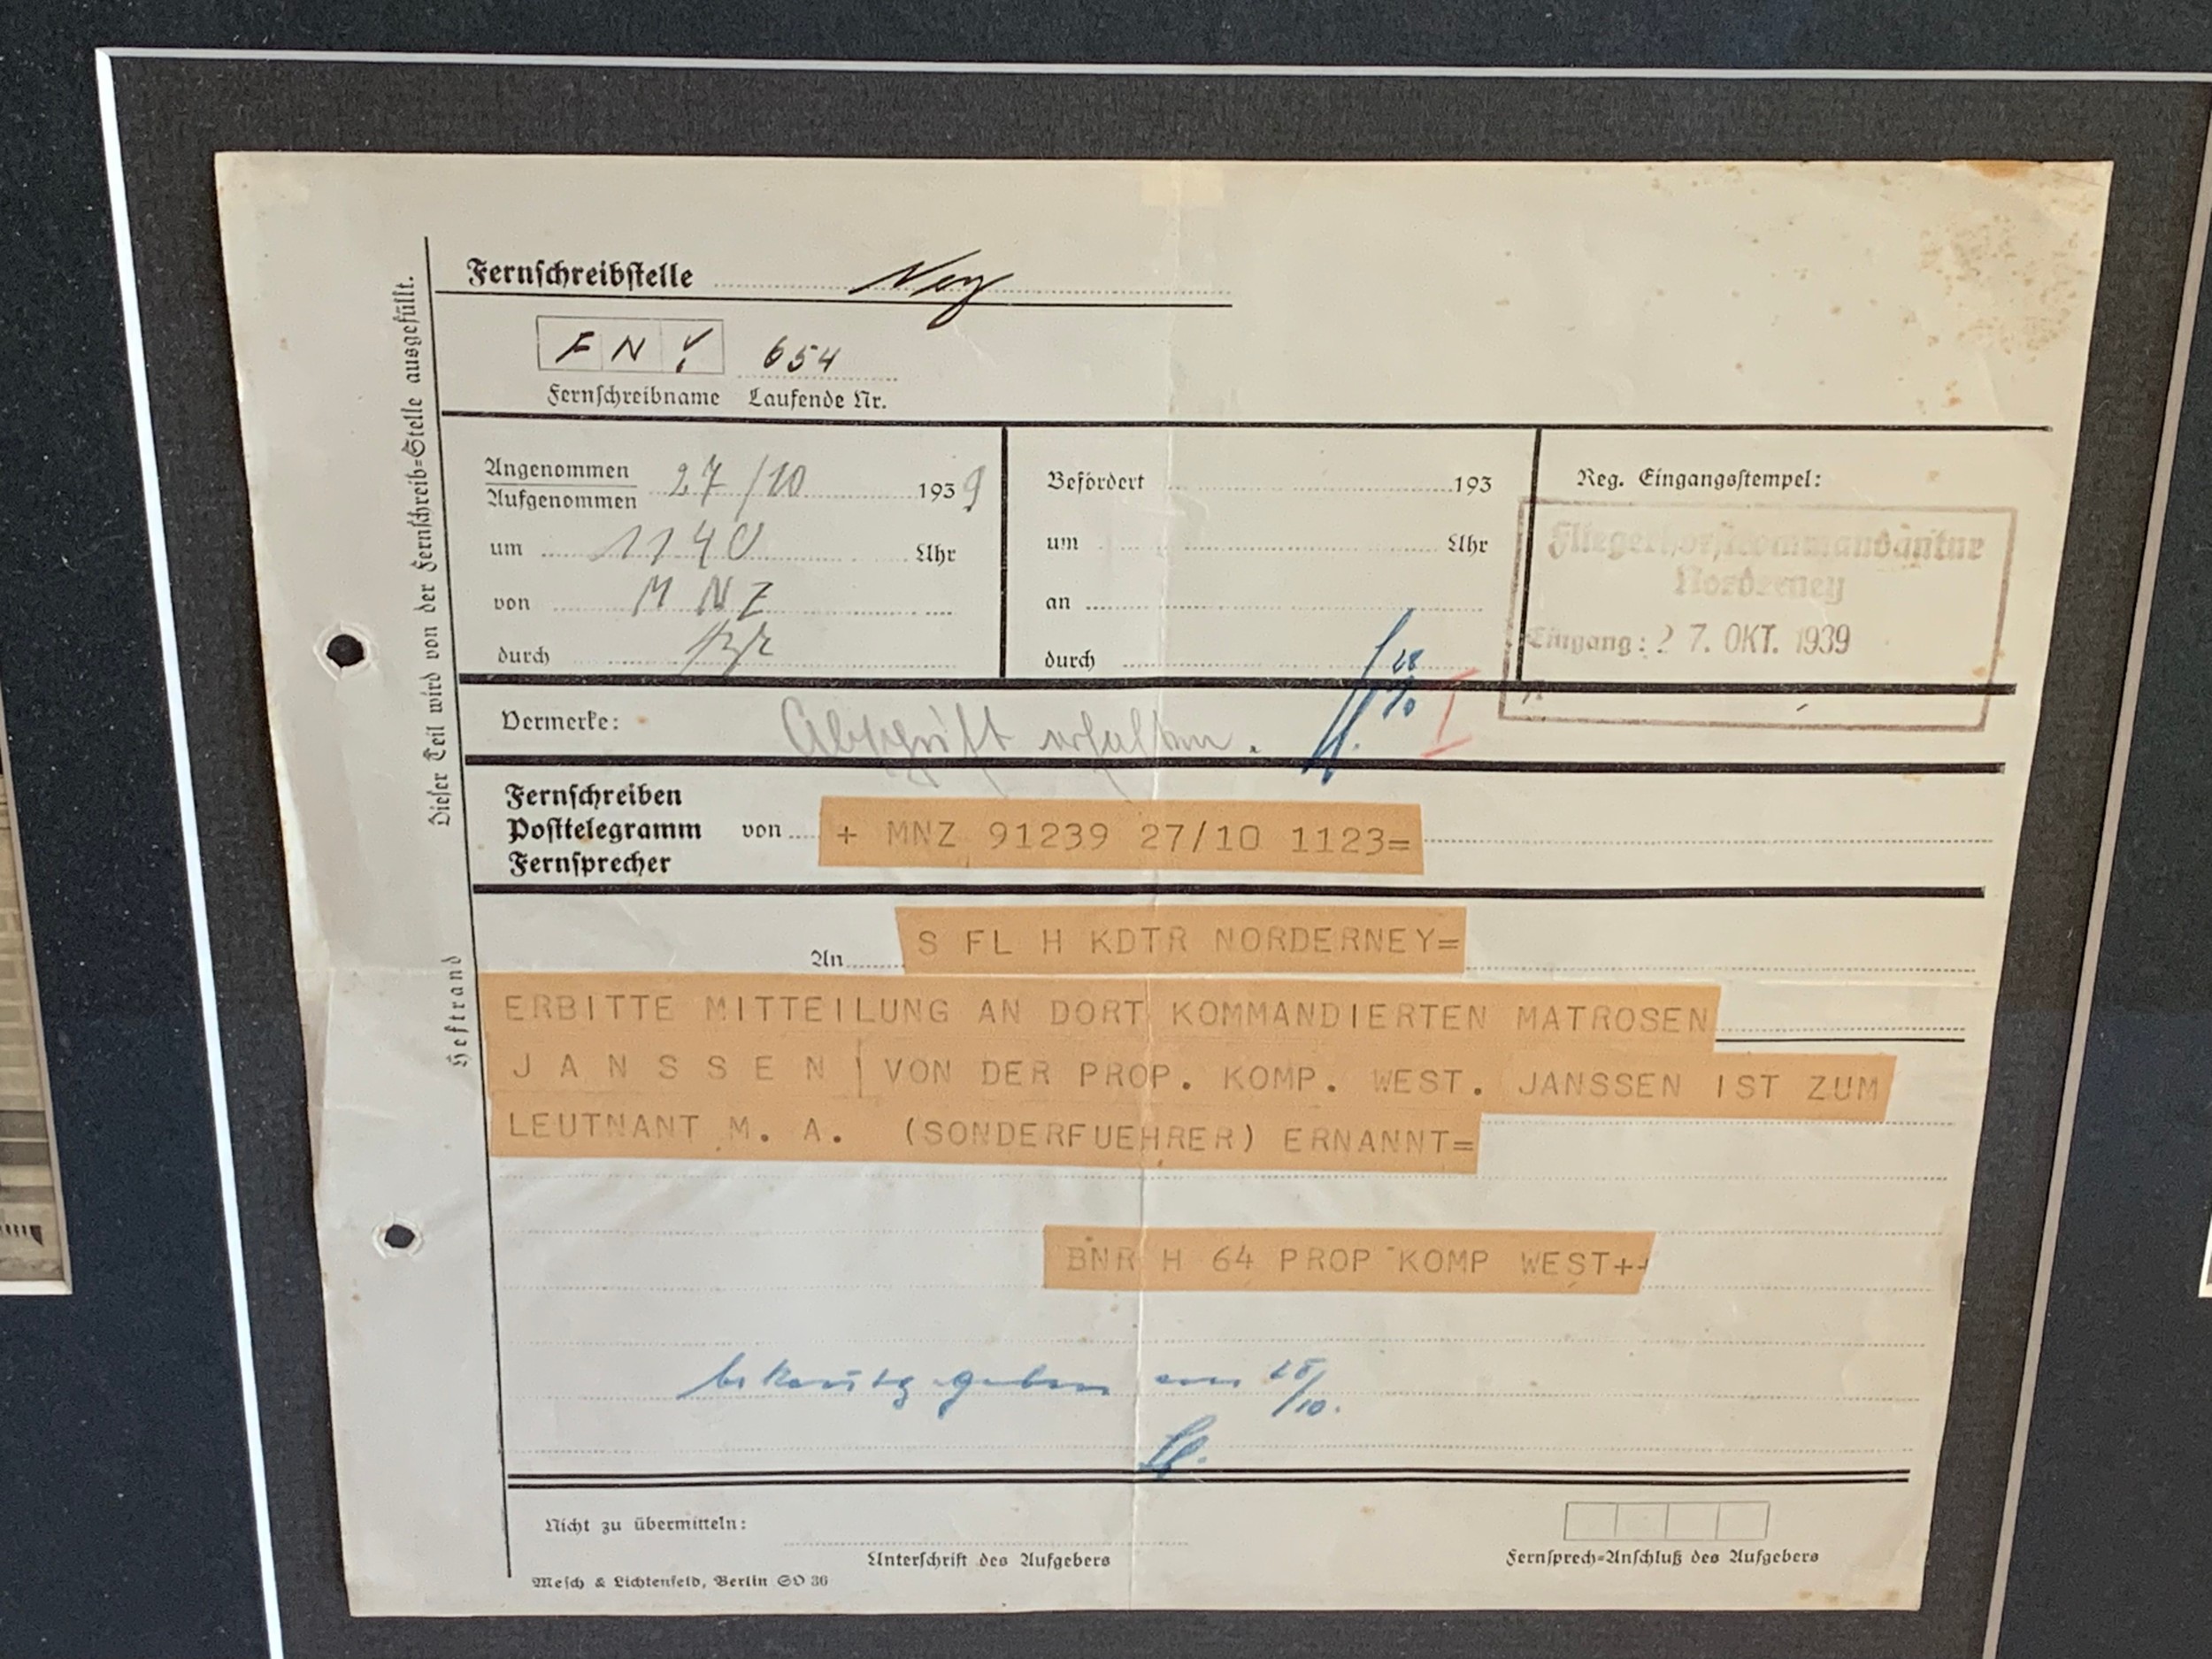 Dieser Teil wird von der Fernschreib=Stelle ausgefüllt.
Heftrand
Fernschreibstelle Ney
F N Y 654
Fernschreibname Laufende Nr.
Angenommen
Aufgenommen 27/10 1939
um 1140 Uhr
von MNZ
durch
Befördert 193
um Uhr
an
durch
Reg. Eingangsstempel:
Fliegerhorstkommandantur
Norderney
Eingang: 27. OKT. 1939
28/10
I
Vermerke: Abschrift erhalten.
Fernschreiben
Posttelegramm von + MNZ 91239 27/10 1123=
Fernsprecher
An S FL H KDTR NORDERNEY=
ERBITTE MITTEILUNG AN DORT KOMMANDIERTEN MATROSEN
J A N S S E N VON DER PROP. KOMP. WEST. JANSSEN IST ZUM
LEUTNANT M. A. (SONDERFUEHRER) ERNANNT=
BNR H 64 PROP KOMP WEST++
bekanntgegeben am 28/10.
Nicht zu übermitteln:
Unterschrift des Aufgebers
Fernsprech=Anschluß des Aufgebers
Mesch & Lichtenfeld, Berlin SO 36